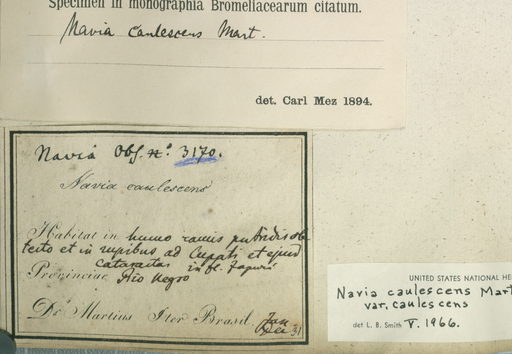 Specimen in monographia Bromeliacearum citatum.
Navia caulescens Mart.
det. Carl Mez 1894.
Navia Obs. nº 3170.
Navia caulescens
Habitat in humo ramis putridis ob
tecto et in rupibus ad Cupati et
cataractas in fl. Japurá
Provinciae Rio Negro
Dr Martius Iter Brasil.
UNITED STATES NATIONAL HE
Navia caulescens Mart
var. caulescens
det L. B. Smith V. 1966.